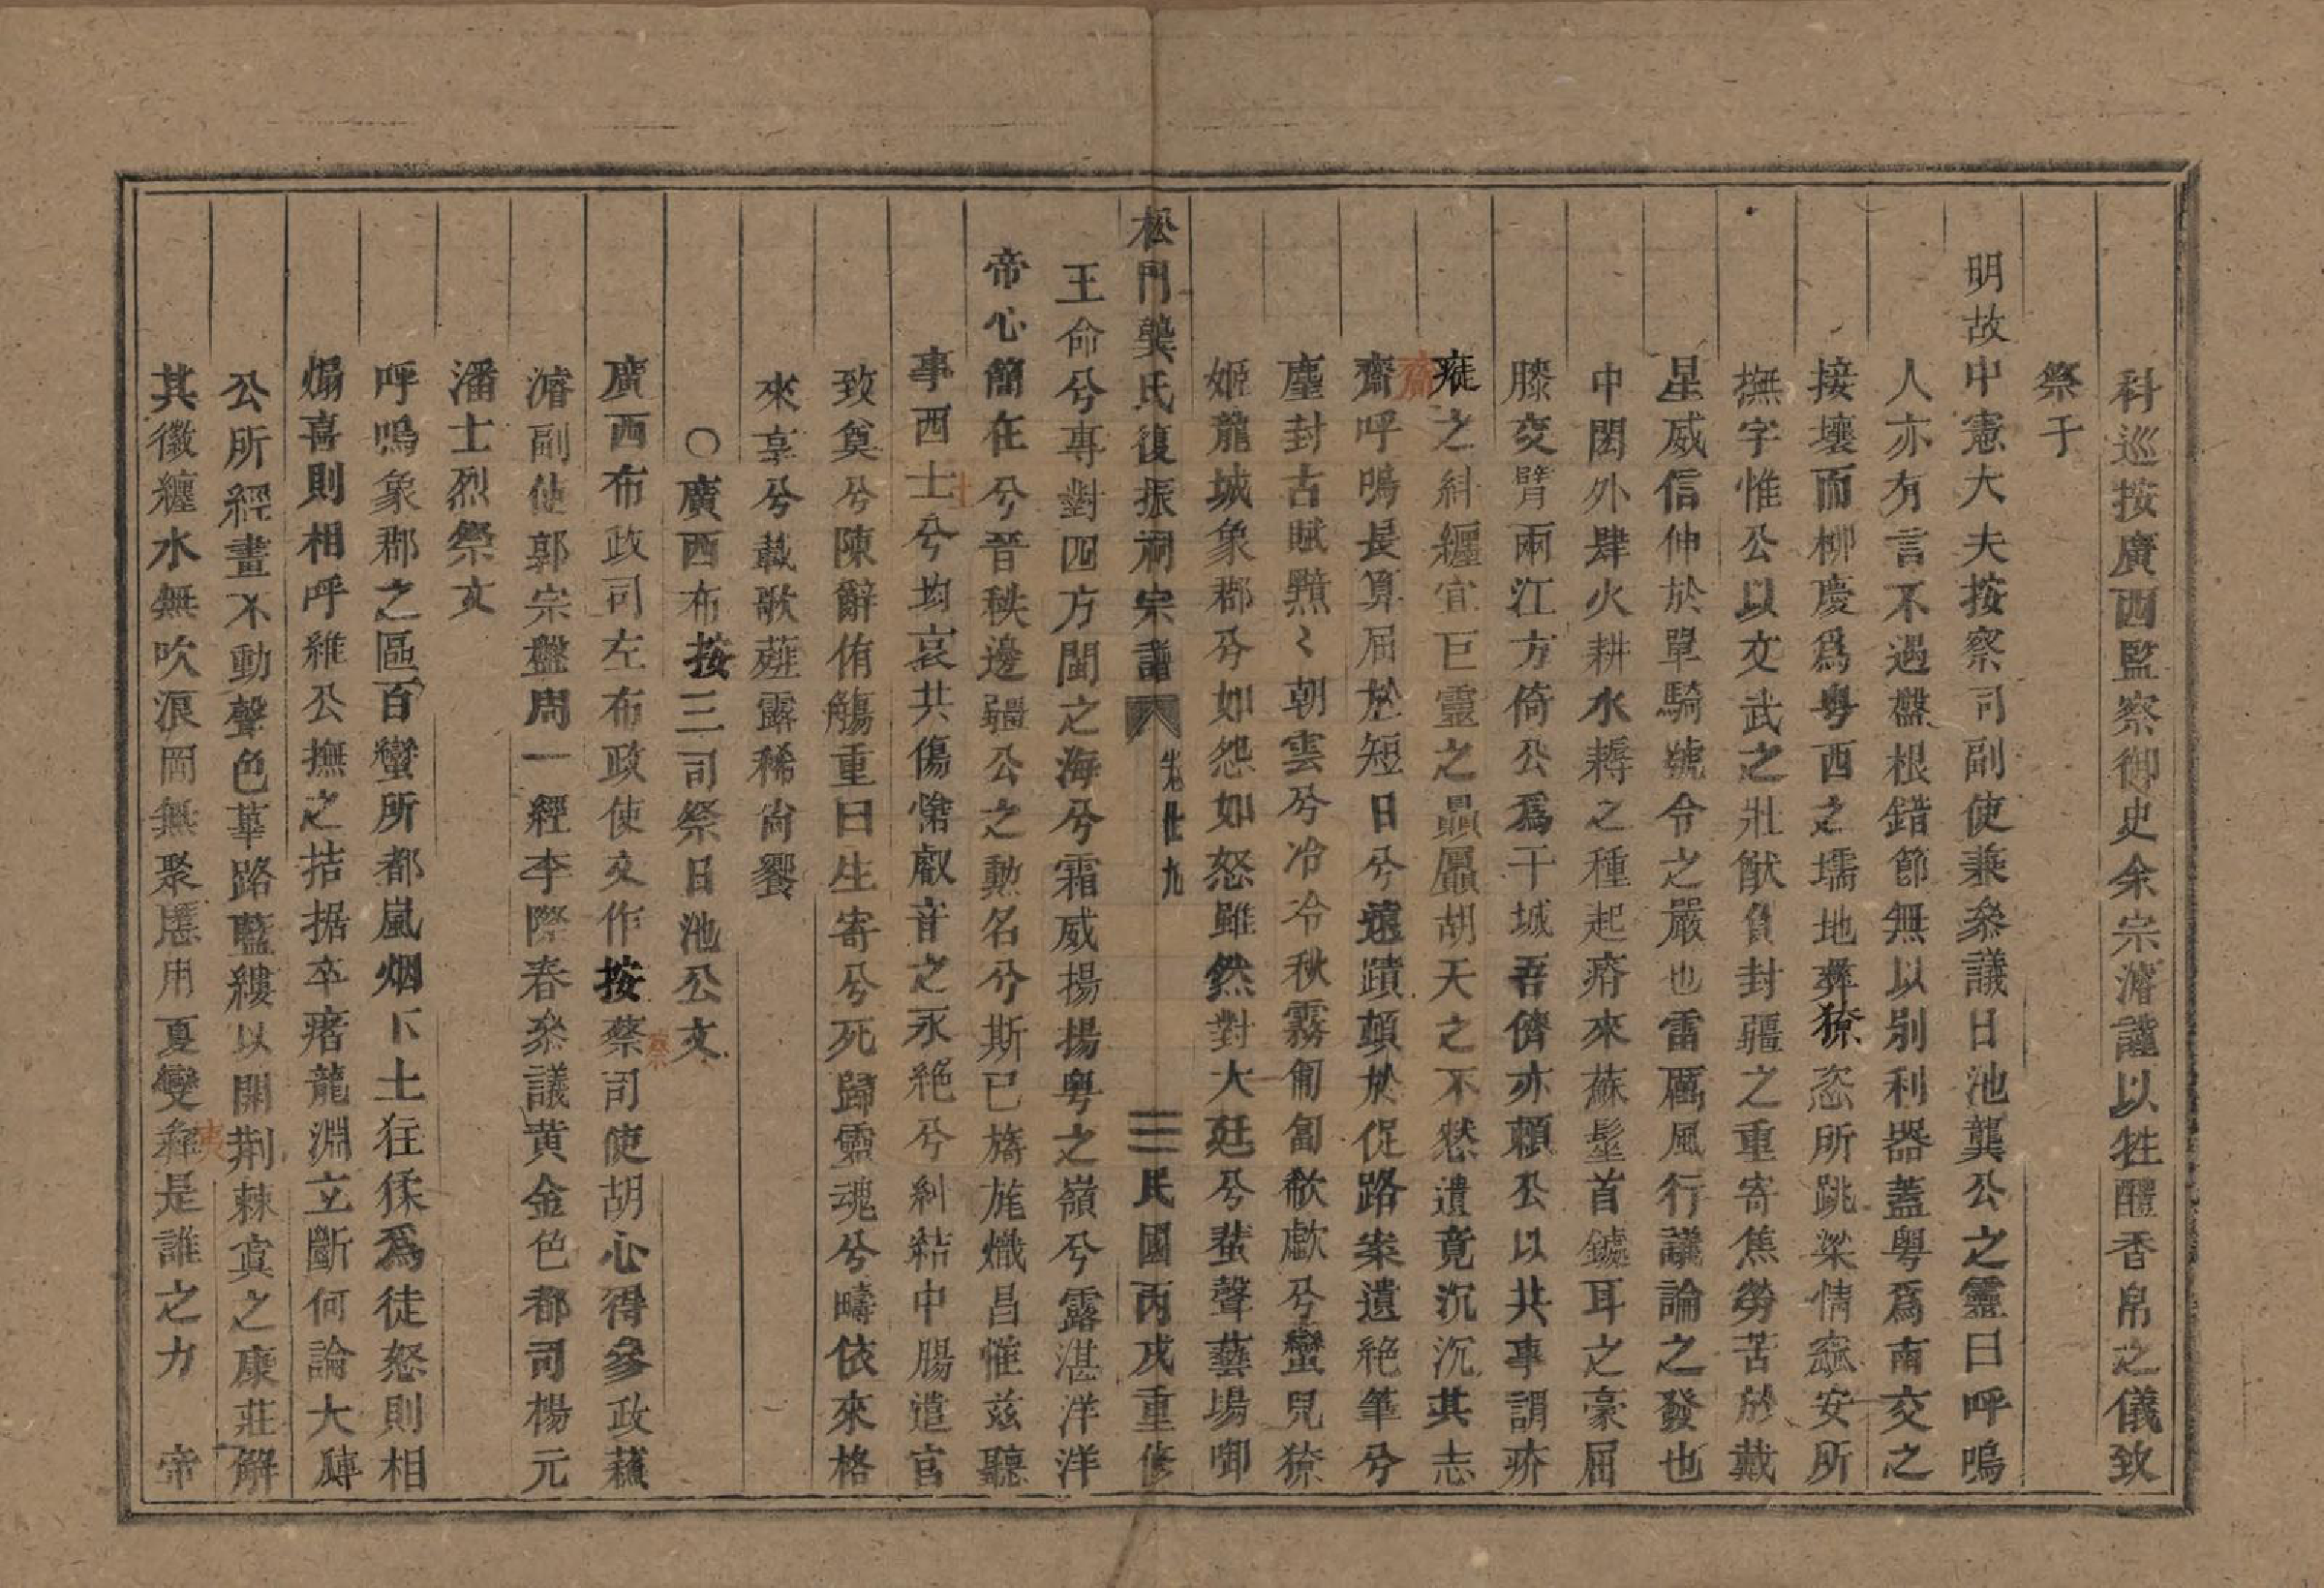 科巡按廣西監察御史余宗濬謹以牲醴香帛之儀致
祭于
明故中憲大夫按察司副使兼叅議日池龔公之靈曰呼鳴
人亦有言不遇盤根錯節無以別利器蓋粤爲南交之
接壤而柳慶爲粤西之壖地彞獠恣所跳梁情寇安所
撫字惟公以文武之壯猷負封疆之重寄焦勞苦於戴
星威信仲於單騎號令之嚴也雷厲風行議論之發也
中閎外肆火耕水耨之種起瘠來蘇髽首鐻耳之豪屈
膝交臂兩江方倚公爲干城吾儕亦賴公以共事謂疥
癡之糾纒宜巨靈之贔屭胡天之不憖遺竟沉沉其志
齋
齋呼鳴長算屈於短日兮遠蹟頓於促路案遺絶筆兮
塵封古賦黯〻朝雲兮冷冷秋霧匍匐欷歔兮蠻兒獠
姬龍城象郡兮如怨如怒雖然對大廷兮蜚聲藝塲啣
松門龔氏復振祠宗譜 卷廿九 民國丙戌重修
王命兮專對四方閩之海兮霜威揚揚粤之嶺兮露湛洋洋
帝心簡在兮晉秩邊疆公之勳名兮斯已旂旄熾昌惟兹聽
事西士兮均哀共傷愴叡音之永絶兮糾結中腸遣官
致奠兮陳辭侑觴重曰生寄兮死歸靈魂兮疇依來格
來享兮載歌薤露稀尙饗
○廣西布按三司祭日池公文
廣西布政司左布政使文作按蔡司使胡心得參政蘓
察
濬副使郭宗盤周一經李際春叅議黄金色都司楊元
潘士烈祭文
呼鳴象郡之區百蠻所都嵐烟下土狂猱爲徒怒則相
煽喜則相呼維公撫之拮据卒瘏龍淵立斷何論大
公所經畫不動聲色蓽路藍縷以開荆棘寘之康莊解
其徽纒水無吹浪岡無聚慝用夏變彞是誰之力 帝
夷